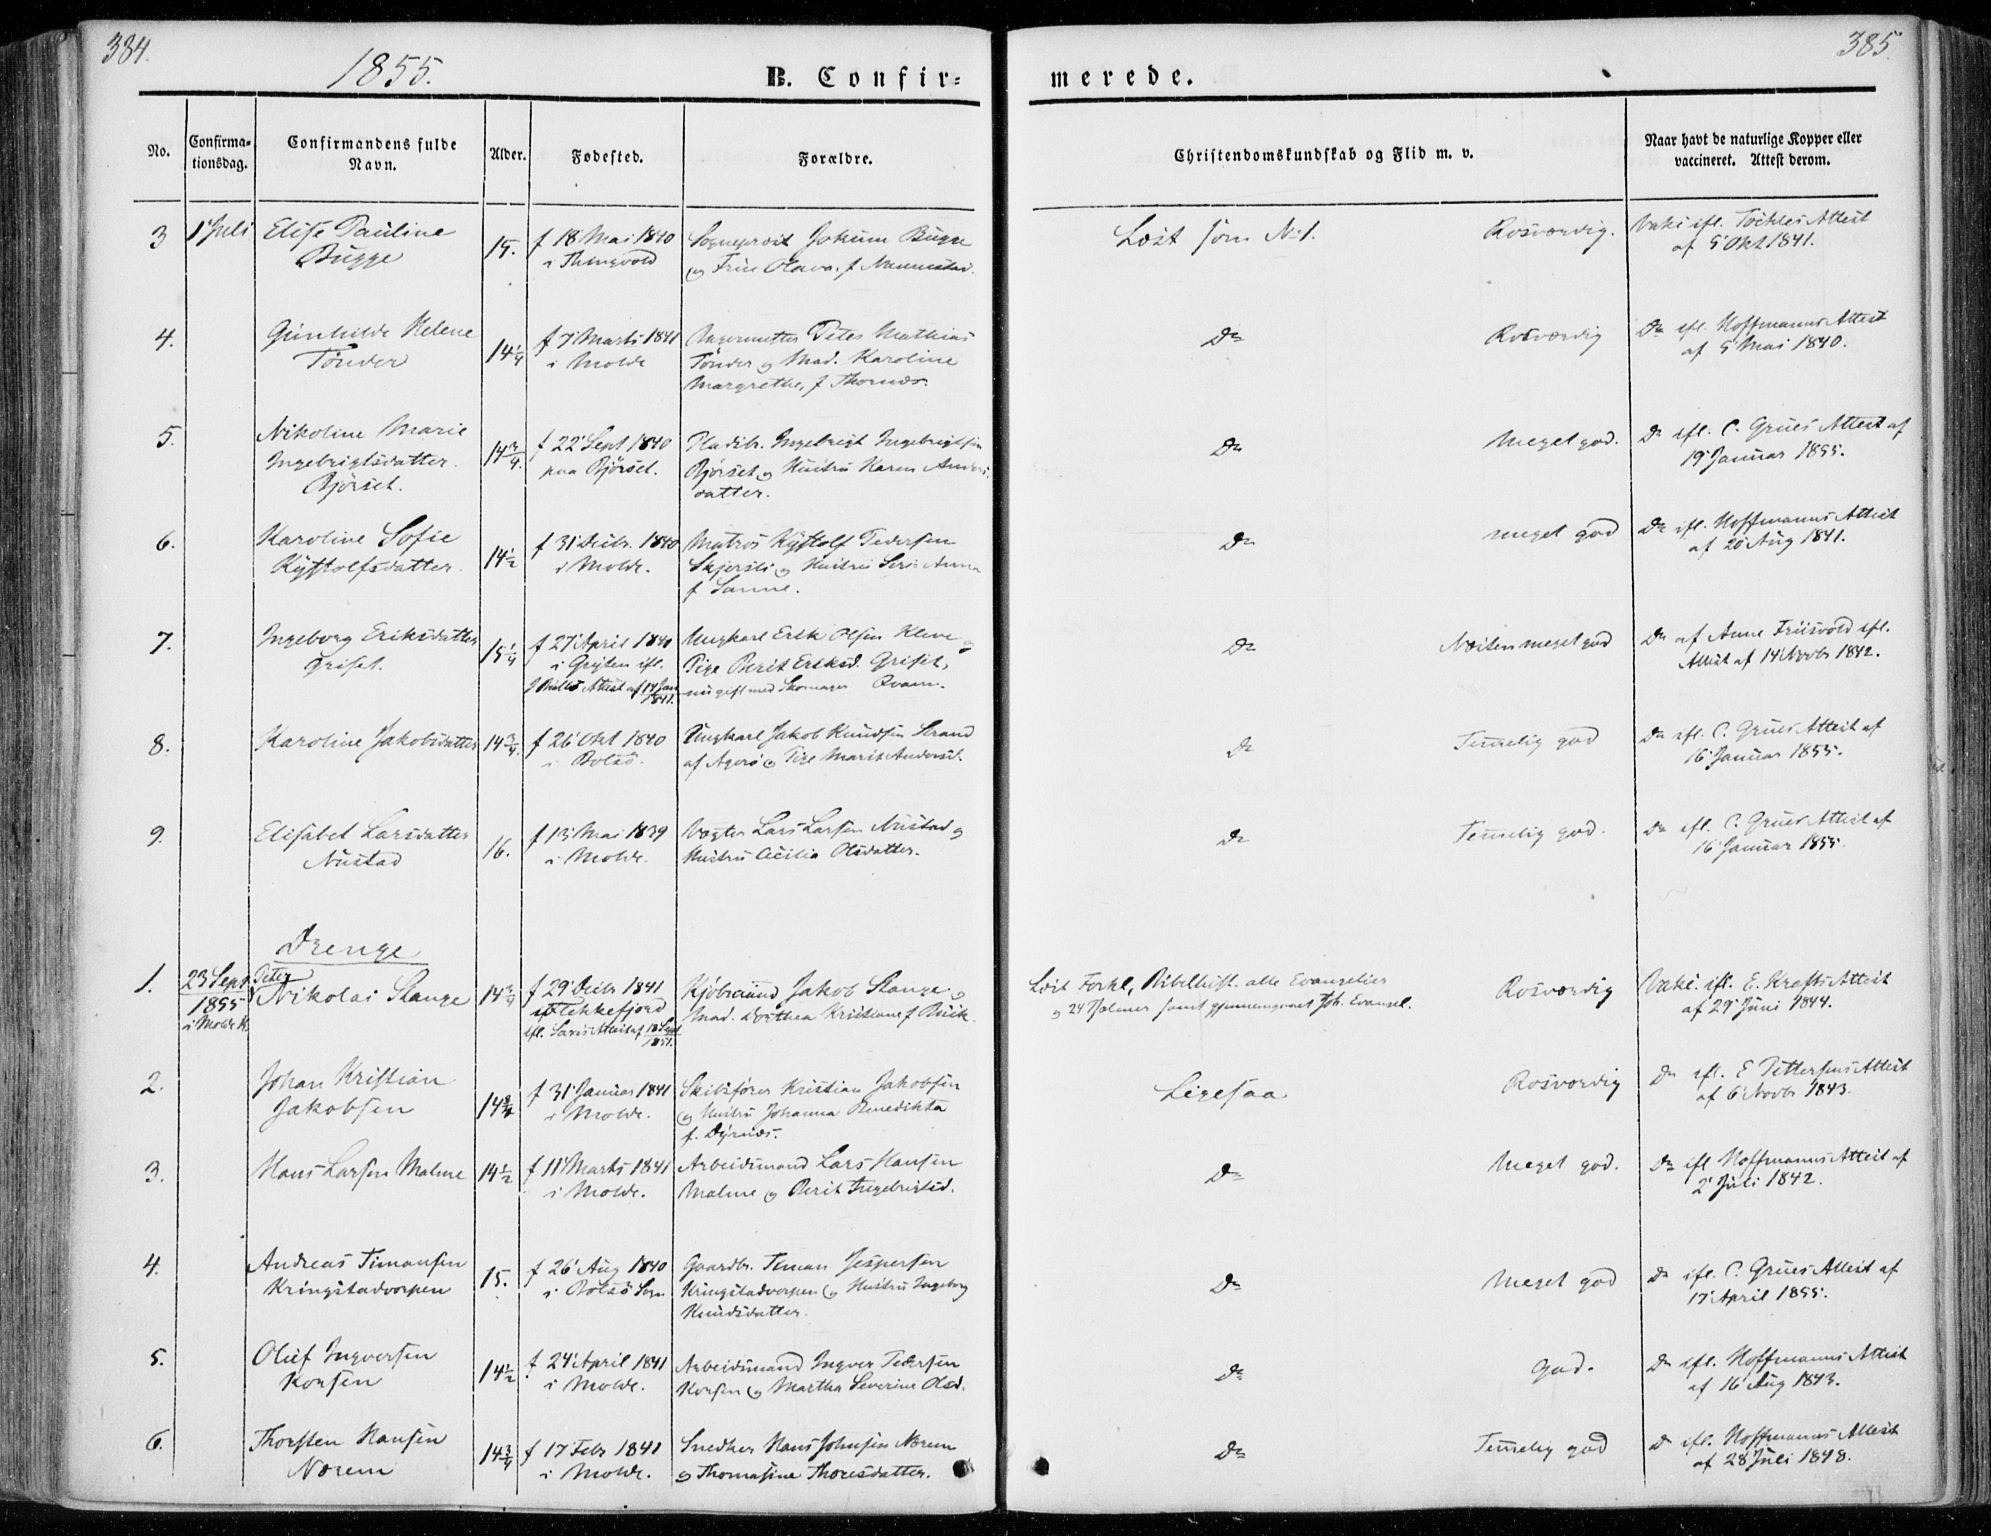 384.
1855.
B. Confir=
merede.
385.
No.
Confirma=
tionsdag.
Confirmandens fulde
Navn.
Alder.
Fødested.
Forældre.
Christendomskundskab og Flid m. v.
Naar havt de naturlige Kopper eller
vaccineret. Attest derom.
3
1 Juli
Elise Pauline
Bugge
15.
f 18 Mai 1840
i Thingvold
Sogneprost Jokum Bugge
og Frue Olava, f
Læst som No 1.
Rosværdig.
Vaks ifl. Attest
af 5 Okt 1841.
4.
Gunhilde Helene
Tønder
14 1/4
f 7 Marts 1841
i Molde
Peter Mathias
Tønder og Mad. Karoline
Margrethe, f Thornæs.
Do
Rosværdig
Do ifl. Hoffmanns Attest
af 5 Mai 1840.
5.
Nikoline Marie
Ingebrigtsdatter
Bjørset.
14 3/4.
f 22 Sept 1840
paa Bjørset.
Pladsbr. Ingebrigt Ingebrigtsen
Bjørset og Hustru Karen Anders
datter.
Do
Meget god.
Do ifl. C. Grues Attest af
19 Januar 1855.
6.
Karoline Sofie
Kystolfsdatter
14 1/2
f 31 Decbr. 1840
i Molde.
Matros Kystolf Pedersen
Skjersli og Hustru Anna
f Sanne.
Do
meget god
Do ifl. Hoffmanns Attest
af 20 Aug 1841.
7.
Ingeborg Eriksdatter
Griset.
15 1/4
f 27 April 1840
i Grytten ifl.
Attest af 14 Jan
1841.
Ungkarl Erik Olsen Kleve og
Pige Berit Eriksd. Griset,
nu gift med Skomager Qvam.
Do
Næsten meget god
Do af Anne Friisvold ifl.
Attest af 14 Novbr 1842.
8.
Karoline Jakobsdatter
14 3/4.
f 26 Okt 1840
i Bolsø.
Ungkarl Jakob Knudsen Strand
af Agerø og Pige Marit Andersd.
Do
Temmelig god
Do ifl. C. Grues Attest af
16 Januar 1855.
9.
Elisabet Larsdatter
Nustad
16.
f 13 Mai 1839
i Molde.
Vægter Lars Larsen Nustad og
Hustru Cicilia Olsdatter.
Do
Temmelig god.
Do ifl. C. Grues Attest af
16 Januar 1855.
Drenge
1.
23 Sept
1855
i Molde K.
Peter
Nikolai Stange
14 3/4
f 29 Decbr 1841
i Flekkefjord
ifl. Attest af 18 Sept
1851.
Kjøbmand Jakob Stange og
Mad. Dorthea Kristiane f
Læst Forkl, Bibelhist. alle Evangelier
og 24 Psalmer samt gjennemgaaet Joh. Evangel.
Rosværdig
Vakc. ifl. E. Krafts Attest
af 29 Juni 1844.
2.
Johan Kristian
Jakobsen
14 3/4
f 31 Januar 1841
i Molde.
Skibsfører Kristian Jakobsen
og Hustru Johanna Benedikta
f. Dyrnæs.
Ligesaa
Rosværdig
Do ifl. E Pettersens Attest
af 6 Novbr 1843.
3.
Hans Larsen Malme
14 1/2
f 11 Marts 1841
i Molde.
Arbeidsmand Lars Hansen
Malme og Berit Ingebrigtsd.
Do
Meget god.
Do ifl Hoffmanns Attest af
2 Juli 1842.
4.
Andreas Timansen
Kringstadvorpen
15.
f 26 Aug 1840
i Bolsø Sogn
Gaardbr. Timan Jespersen
Kringstadvorpen og Hustru Ingeborg
Knudsdatter.
Do
Meget god
Do ifl. C. Grues Attest af
17 April 1855.
5.
Oluf Ingversen
Korsen
14 1/2
f 24 April 1841
i Molde.
Arbeidsmand Ingver Pedersen
Korsen og Martha Severine Olsd.
Do
God.
Do ifl. Hoffmanns Attest
af 16 Aug 1843.
6.
Thorsten Hansen
Norem
14 3/4
f 17 Febr 1841
i Molde.
Snedker Hans Johnsen Norem
og Thomasine Thoresdatter.
Do
Temmelig god
Do ifl. Hoffmanns Attest
af 28 Juli 1848.